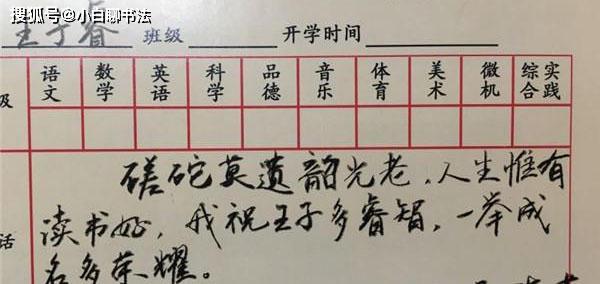 搜狐号@小白聊书法
王子睿 班级 开学时间
级 语文 数学 英语 科学 品德 音乐 体育 美术 微机 综合实践
磋砣莫遗韶光老,人生惟有
话 读书好,我祝王子多睿智,一举成
名多荣耀。